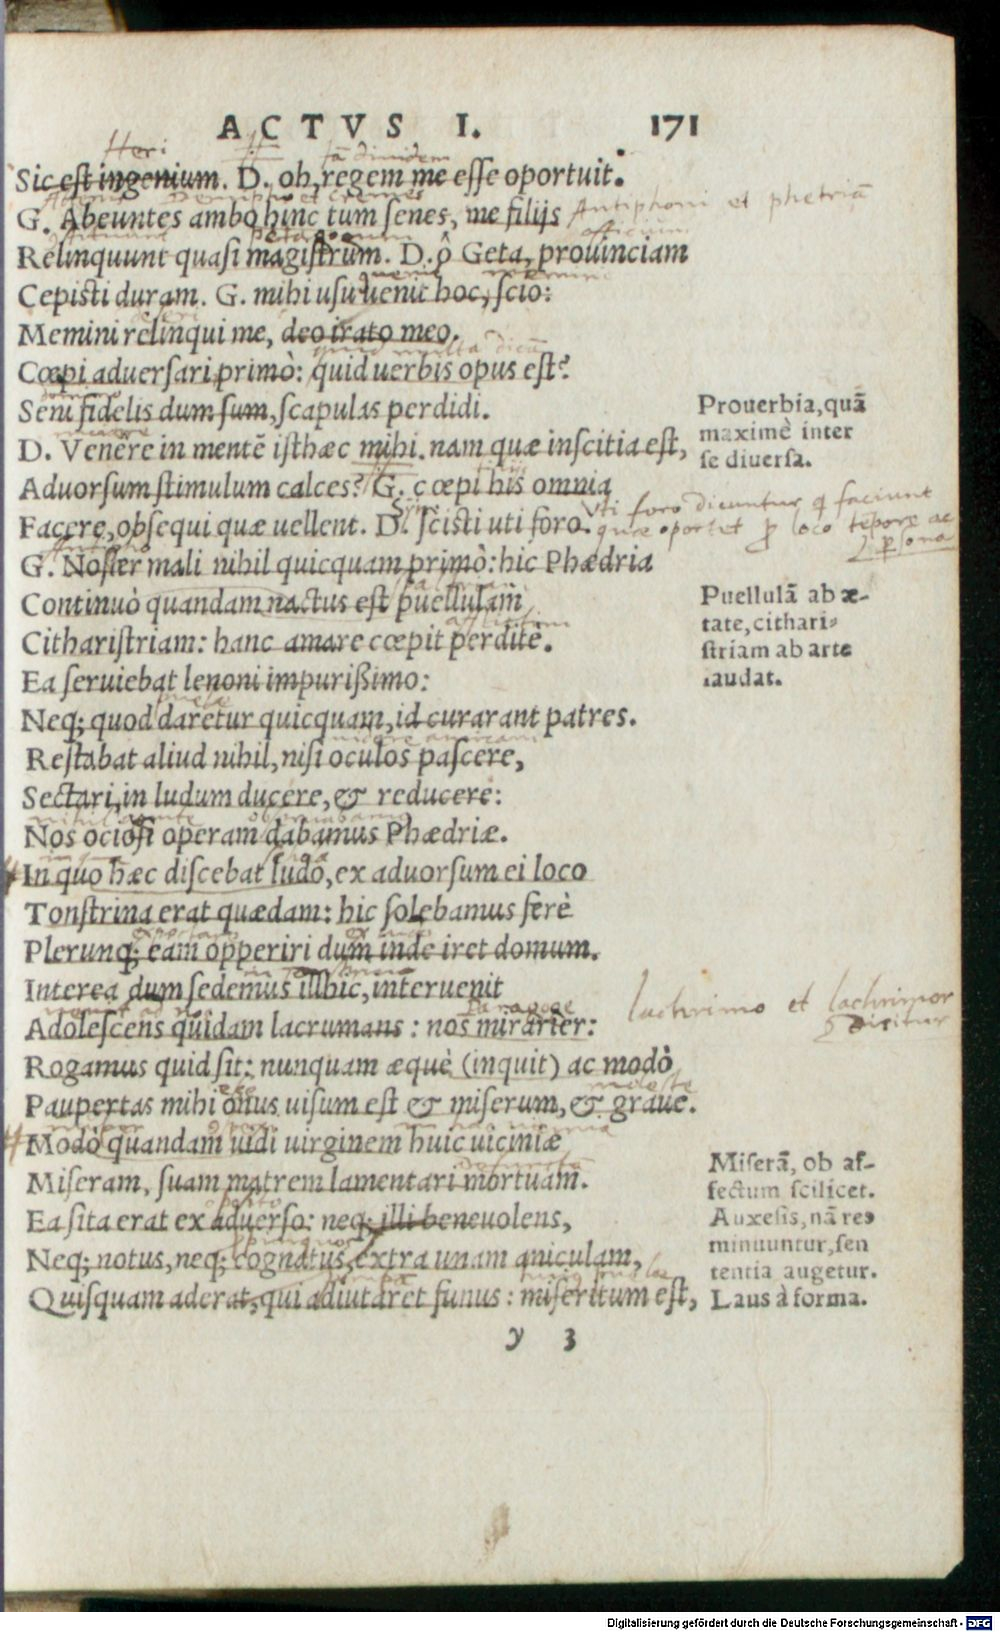 ACTVS I. 171
Heri
Sic est ingenium. D. oh, regem me esse oportuit.
G. Abeuntes ambo hinc tum senes, me filijs
Antiphoni et phetriã
Relinquunt quasi magistrum. D. ô Geta, prouinciam
officium
Cepisti duram. G. mihi usu uenit hoc, scio:
Memini relinqui me, deo irato meo.
Cœpi aduersari primò: quid uerbis opus est?
Seni fidelis dum sum, scapulas perdidi.
Prouerbia, quã
maximè inter
se diuersa.
D. Venêre in mentē isthæc mihi. nam quæ inscitia est,
Aduorsum stimulum calces? G. cœpi his omnia
Facere, obsequi quæ uellent. D. scisti uti foro.
Uti foro dicuntur q faciunt
quæ oportet p loco tẽpore ac
psona
G. Noster mali nihil quicquam primò: hic Phædria
Continuò quandam nactus est puellulam
Puellulã ab æ-
tate, cithari-
striam ab arte
laudat.
Citharistriam: hanc amare cœpit perditè.
Ea seruiebat lenoni impurißimo:
Neq; quod daretur quicquam, id curarant patres.
Restabat aliud nihil, nisi oculos pascere,
Sectari, in ludum ducere, & reducere:
Nos ociosi operam dabamus Phædriæ.
In quo hæc discebat ludo, ex aduorsum ei loco
Tonstrina erat quædam: hic solebamus ferè
Plerunq; eam opperiri dum inde iret domum.
Interea dum sedemus illhic, interuenit
Adolescens quidam lacrumans : nos mirarier:
Paragoge
lachrimo et lachrimor
dicitur
Rogamus quid sit: nunquam æquè (inquit) ac modò
Paupertas mihi onus uisum est & miserum, & graue.
Modò quandam uidi uirginem huic uiciniæ
Miseram, suam matrem lamentari mortuam.
Ea sita erat ex aduerso: neq; illi beneuolens,
Neq; notus, neq; cognatus, extra unam aniculam,
Quisquam aderat, qui adiutaret funus : miseritum est,
Miserã, ob af-
fectum scilicet.
Auxesis, nã res
minuuntur, sen
tentia augetur.
Laus à forma.
y 3
Digitalisierung gefördert durch die Deutsche Forschungsgemeinschaft - DFG